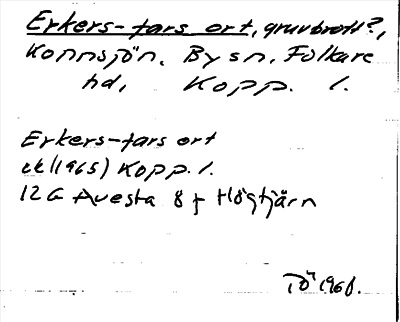 Erkers-fars ort, gruvbrott?,
Konnsjön, By sn, Folkare
hd, Kopp. l.
Erkers-fars ort
ek (1965) Kopp. l.
12G Avesta 8 f Högtjärn
TÖ 1968.